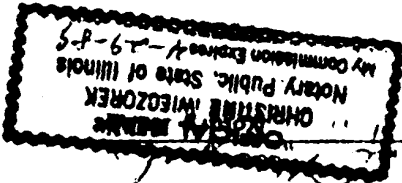 "OFFICIAL SEAL"
CHRISTINE WIECZOREK
Notary Public, State of Illinois
My Commission Expires